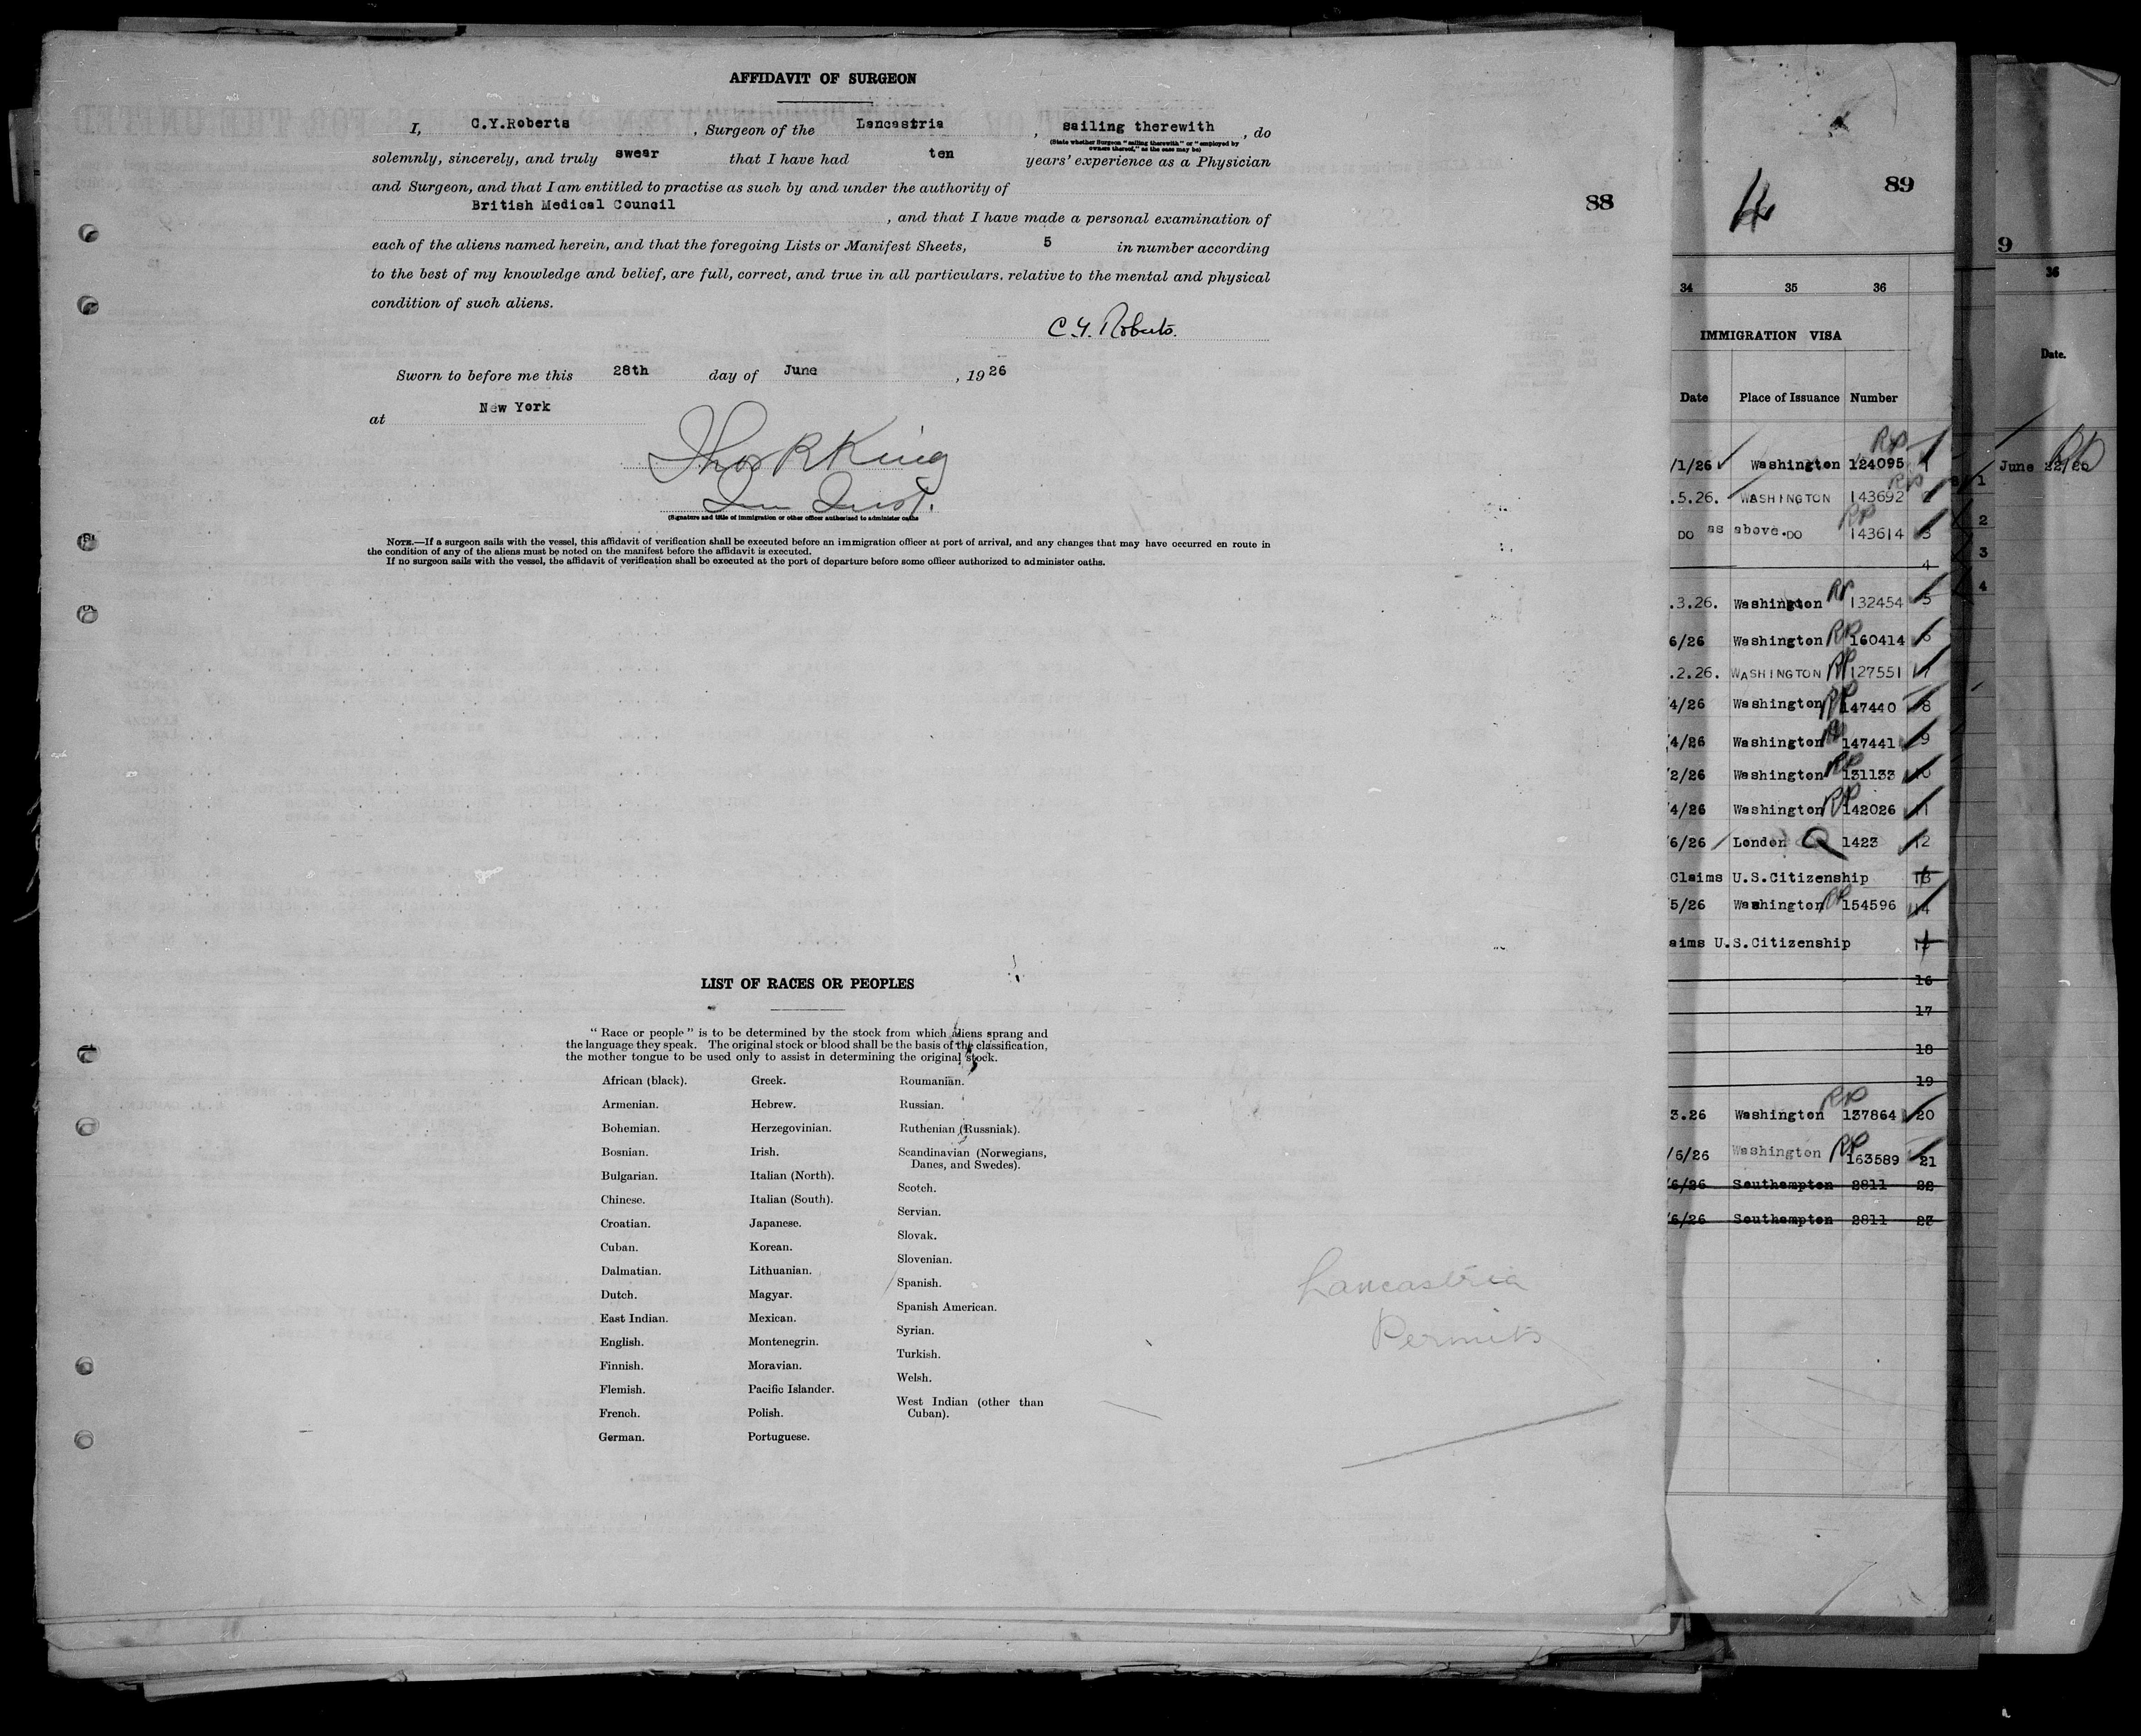 AFFIDAVIT OF SURGEON
I, C.Y.Roberts , Surgeon of the Lancastria , sailing therewith , do
(State whether Surgeon "sailing therewith" or "employed by
owners thereof," as the case may be)
solemnly, sincerely, and truly swear that I have had ten years' experience as a Physician
and Surgeon, and that I am entitled to practise as such by and under the authority of
British Medical Council , and that I have made a personal examination of
each of the aliens named herein, and that the foregoing Lists or Manifest Sheets, 5 in number according
to the best of my knowledge and belief, are full, correct, and true in all particulars. relative to the mental and physical
condition of such aliens.
C.Y. Roberts.
Sworn to before me this 28th day of June , 19 26
at New York
Thos R King
(Signature and title of immigration or other officer authorized to administer oaths
NOTE.—If a surgeon sails with the vessel, this affidavit of verification shall be executed before an immigration officer at port of arrival, and any changes that may have occurred en route in
the condition of any of the aliens must be noted on the manifest before the affidavit is executed.
If no surgeon sails with the vessel, the affidavit of verification shall be executed at the port of departure before some officer authorized to administer oaths.
LIST OF RACES OR PEOPLES
"Race or people" is to be determined by the stock from which aliens sprang and
the language they speak. The original stock or blood shall be the basis of the classification,
the mother tongue to be used only to assist in determining the original stock.
African (black).
Armenian.
Bohemian.
Bosnian.
Bulgarian.
Chinese.
Croatian.
Cuban.
Dalmatian.
Dutch.
East Indian.
English.
Finnish.
Flemish.
French.
German.
Greek.
Hebrew.
Herzegovinian.
Irish.
Italian (North).
Italian (South).
Japanese.
Korean.
Lithuanian.
Magyar.
Mexican.
Montenegrin.
Moravian.
Pacific Islander.
Polish.
Portuguese.
Roumanian.
Russian.
Ruthenian (Russniak).
Scandinavian (Norwegians,
Danes, and Swedes).
Scotch.
Servian.
Slovak.
Slovenian.
Spanish.
Spanish American.
Syrian.
Turkish.
Welsh.
West Indian (other than
Cuban).
Lancastria
Permits
88
89
34 35 36
IMMIGRATION VISA
Date Place of Issuance Number
RP
/1/26 Washington 124095 1
RP
.5.26. WASHINGTON 143692 2
RP
DO as above. DO 143614 3
4
.3.26. Washington RP 132454 5
6/26 Washington RP 160414 6
.2.26. WASHINGTON RP 127551 7
4/26 Washington RP 147440 8
4/26 Washington RP 147441 9
2/26 Washington RP 131133 10
4/26 Washington RP 142026 11
6/26 London 1423 12
Claims U.S.Citizenship 13
5/26 Washington RP 154596 14
aims U.S.Citizenship
16
17
18
19
3.26 Washington RP 137864 20
/6/26 Washington RP 163589 21
6/26 Southampton 2811 22
6/26 Southampton 2811 23
9
36
Date.
June 22/26 RP
1
2
3
4